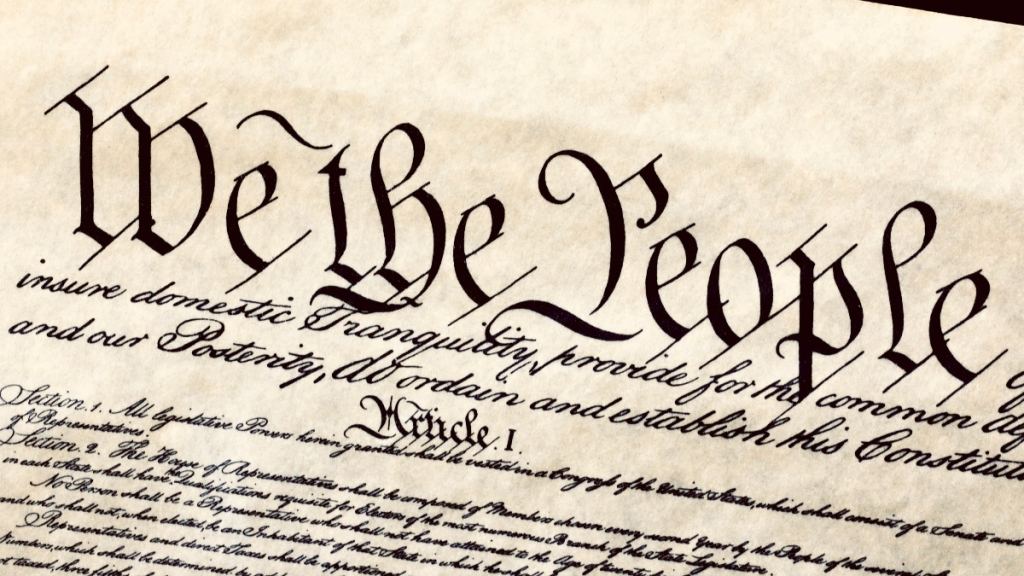 We the People
insure domestic Tranquility, provide for the common
and our Posterity, do ordain and establish this Constitut
Article. I.
Section. 1. All legislative Powers herein granted shall be vested in a Congress of the United States, which shall consist of a Senate and
of Representatives.
Section. 2. The House of Representatives shall be composed of Members chosen every second Year by the People of the several
in each State shall have the Qualifications requisite for Electors of the most numerous Branch of the State Legislature.
No Person shall be a Representative who shall not have attained to the Age of twenty five
and who shall not, when elected, be an Inhabitant of that State in which he shall
Representatives and direct Taxes shall be apportioned
Numbers, which shall be determined by
not taxed, three fifths